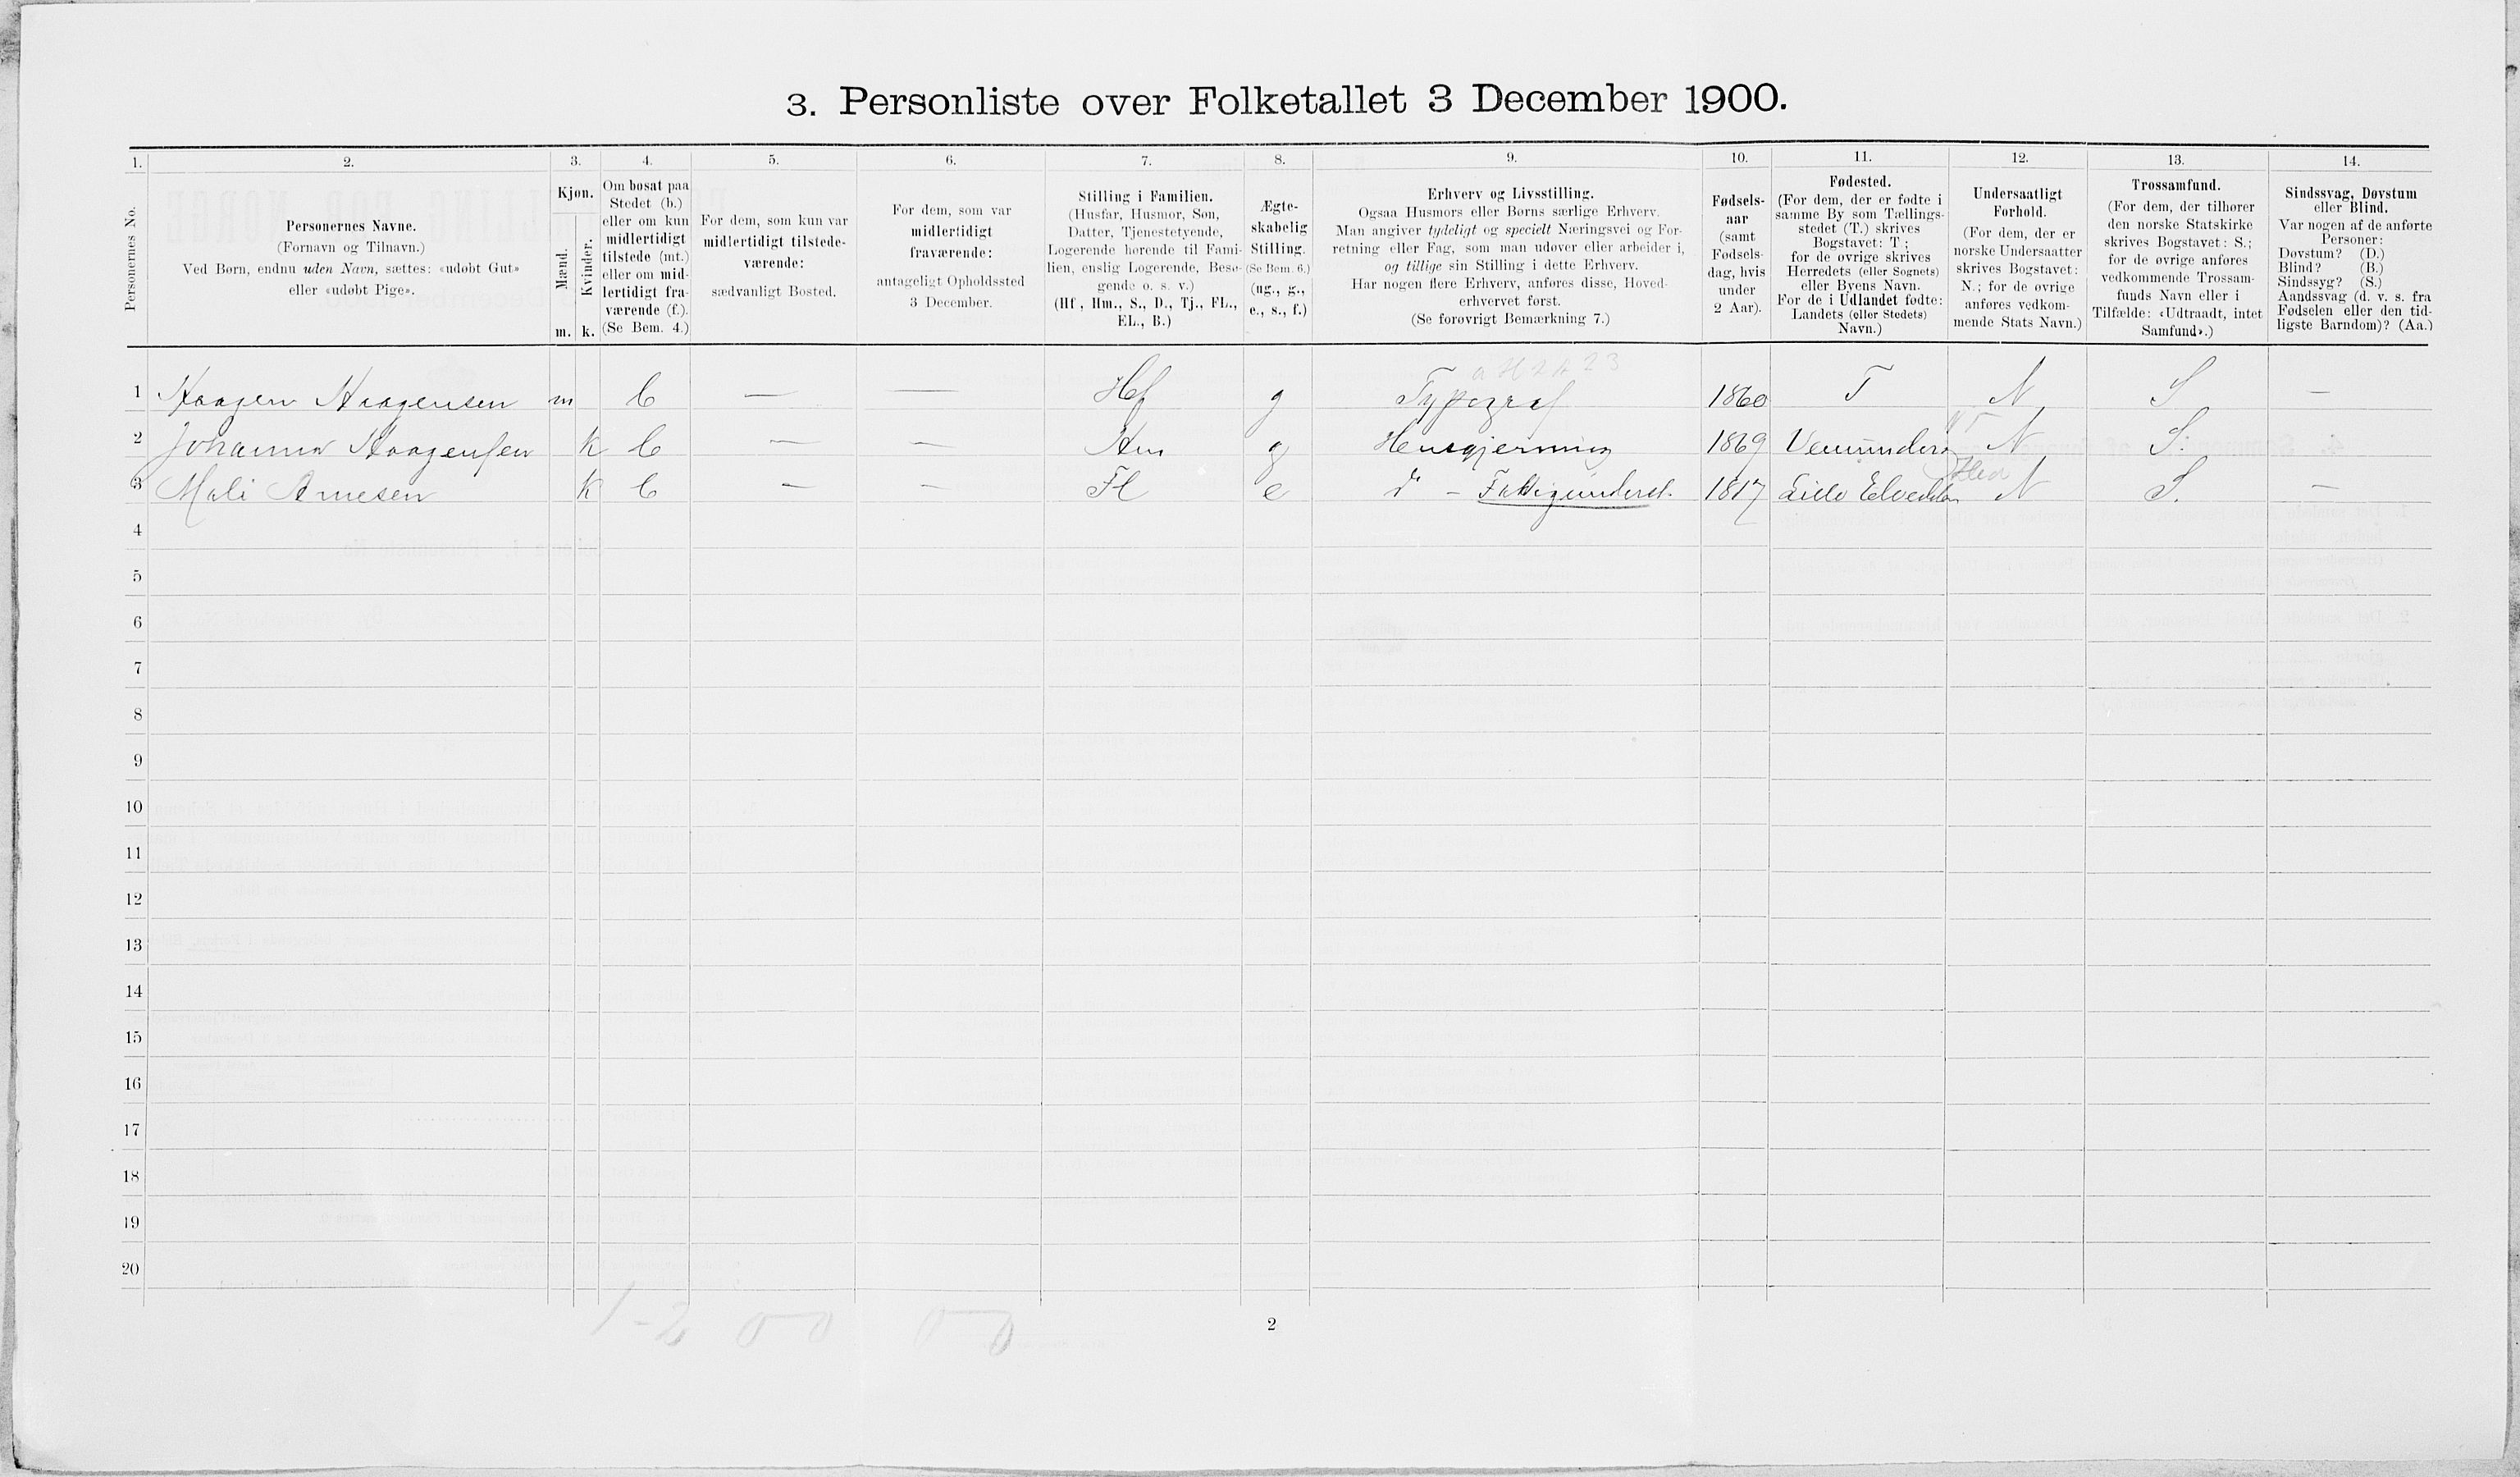 3. Personliste over Folketallet 3 December 1900.
1. 2. 3. 4. 5. 6. 7. 8. 9. 10. 11. 12. 13. 14.
Personernes No.
Personernes Navne.
(Fornavn og Tilnavn.)
Ved Børn, endnu uden Navn, sættes: «udøbt Gut»
eller «udøbt Pige».
Kjøn.
Mænd.
Kvinder.
m. k.
Om bosat paa
Stedet (b.)
eller om kun
midlertidigt
tilstede (mt.)
eller om mid-
lertidigt fra-
værende (f.).
(Se Bem. 4.)
For dem, som kun var
midlertidigt tilstede-
værende:
sædvanligt Bosted.
For dem, som var
midlertidigt
fraværende:
antageligt Opholdssted
3 December.
Stilling i Familien.
(Husfar, Husmor, Søn,
Datter, Tjenestetyende,
Logerende hørende til Fami-
lien, enslig Logerende, Besø-
gende o. s. v.)
(Hf., Hm., S., D., Tj., FL.,
EL., B.)
Ægte-
skabelig
Stilling.
(Se Bem. 6.)
(ug., g.,
e., s., f.)
Erhverv og Livsstilling.
Ogsaa Husmors eller Børns særlige Erhverv.
Man angiver tydeligt og specielt Næringsvei og For-
retning eller Fag, som man udøver eller arbeider i,
og tillige sin Stilling i dette Erhverv.
Har nogen flere Erhverv, anføres disse, Hoved-
erhvervet først.
(Se forøvrigt Bemærkning 7.)
Fødsels-
aar
(samt
Fødsels-
dag, hvis
under
2 Aar).
Fødested.
(For dem, der er fødte i
samme By som Tællings-
stedet (T.) skrives
Bogstavet: T;
for de øvrige skrives
Herredets (eller Sognets)
eller Byens Navn.
For de i Udlandet fødte:
Landets (eller Stedets)
Navn.)
Undersaatligt
Forhold.
(For dem, der er
norske Undersaatter
skrives Bogstavet:
N.; for de øvrige
anføres vedkom-
mende Stats Navn.)
Trossamfund.
(For dem, der tilhører
den norske Statskirke
skrives Bogstavet: S.;
for de øvrige anføres
vedkommende Trossam-
funds Navn eller i
Tilfælde: «Udtraadt, intet
Samfund».)
Sindssvag, Døvstum
eller Blind.
Var nogen af de anførte
Personer:
Døvstum? (D.)
Blind? (B.)
Sindssyg? (S.)
Aandssvag (d. v. s. fra
Fødselen eller den tid-
ligste Barndom)? (Aa.)
1 Haagen Haagensen m b — — Hf g Typograf 1860 T N S —
2 Johanna Haagensen k b — — Hm g Husgjerning 1869 N S.
3 Mali Arnesen k b — — Fl e do – Fattigunderst. 1817 Lille Elvedalen N S. —
4
5
6
7
8
9
10
11
12
13
14
15
16
17
18
19
20
1-2 0 0 0 0
2